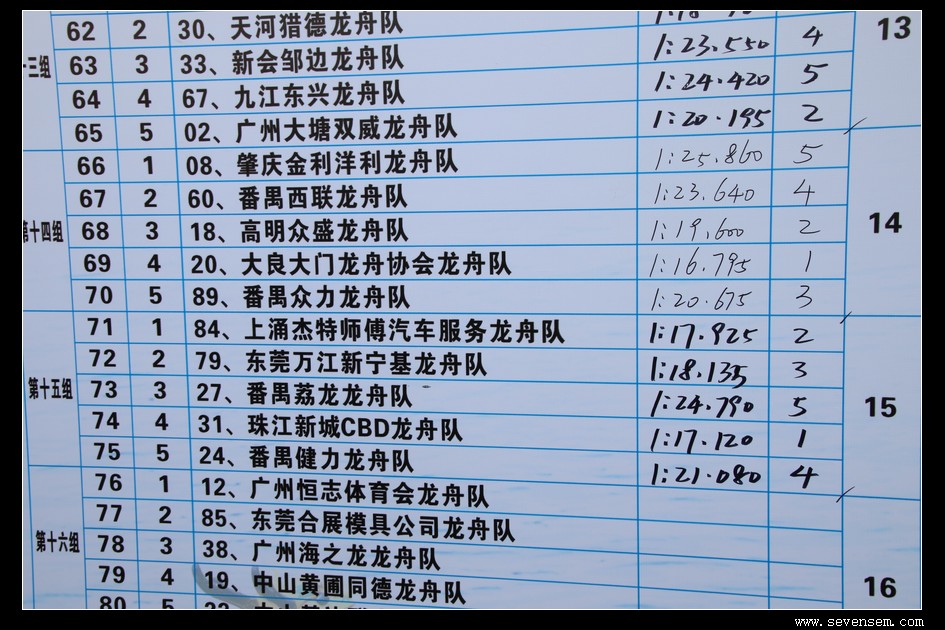 62 2 30、天河猎德龙舟队 13
十三组 63 3 33、新会邹边龙舟队 1:23.550 4
64 4 67、九江东兴龙舟队 1:24.420 5
65 5 02、广州大塘双威龙舟队 1:20.195 2
66 1 08、肇庆金利洋利龙舟队 1:25.860 5
67 2 60、番禺西联龙舟队 1:23.640 4
第十四组 68 3 18、高明众盛龙舟队 1:19.600 2 14
69 4 20、大良大门龙舟协会龙舟队 1:16.795 1
70 5 89、番禺众力龙舟队 1:20.675 3
71 1 84、上涌杰特师傅汽车服务龙舟队 1:17.925 2
72 2 79、东莞万江新宁基龙舟队 1:18.135 3
第十五组 73 3 27、番禺荔龙龙舟队 1:24.790 5 15
74 4 31、珠江新城CBD龙舟队 1:17.120 1
75 5 24、番禺健力龙舟队 1:21.080 4
76 1 12、广州恒志体育会龙舟队
77 2 85、东莞合展模具公司龙舟队
第十六组 78 3 38、广州海之龙龙舟队
79 4 19、中山黄圃同德龙舟队 16
80 5
www.sevensem.com